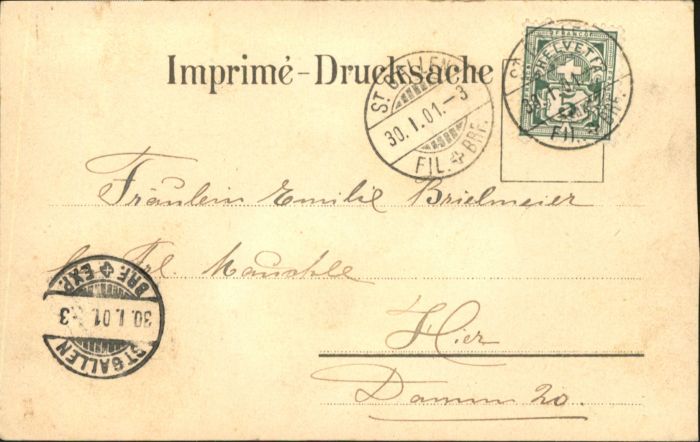 Imprimé-Drucksache
ST. GALLEN
30.I.01.-3
FIL. BRF.
FRANCO
HELVETIA
5
30.I.01
FIL. BRF.
Fräulein Emilie Brielmeier
Frl. Mauchle
Hier
Damm 20.
ST. GALLEN
30.I.01.-3
BRF. EXP.